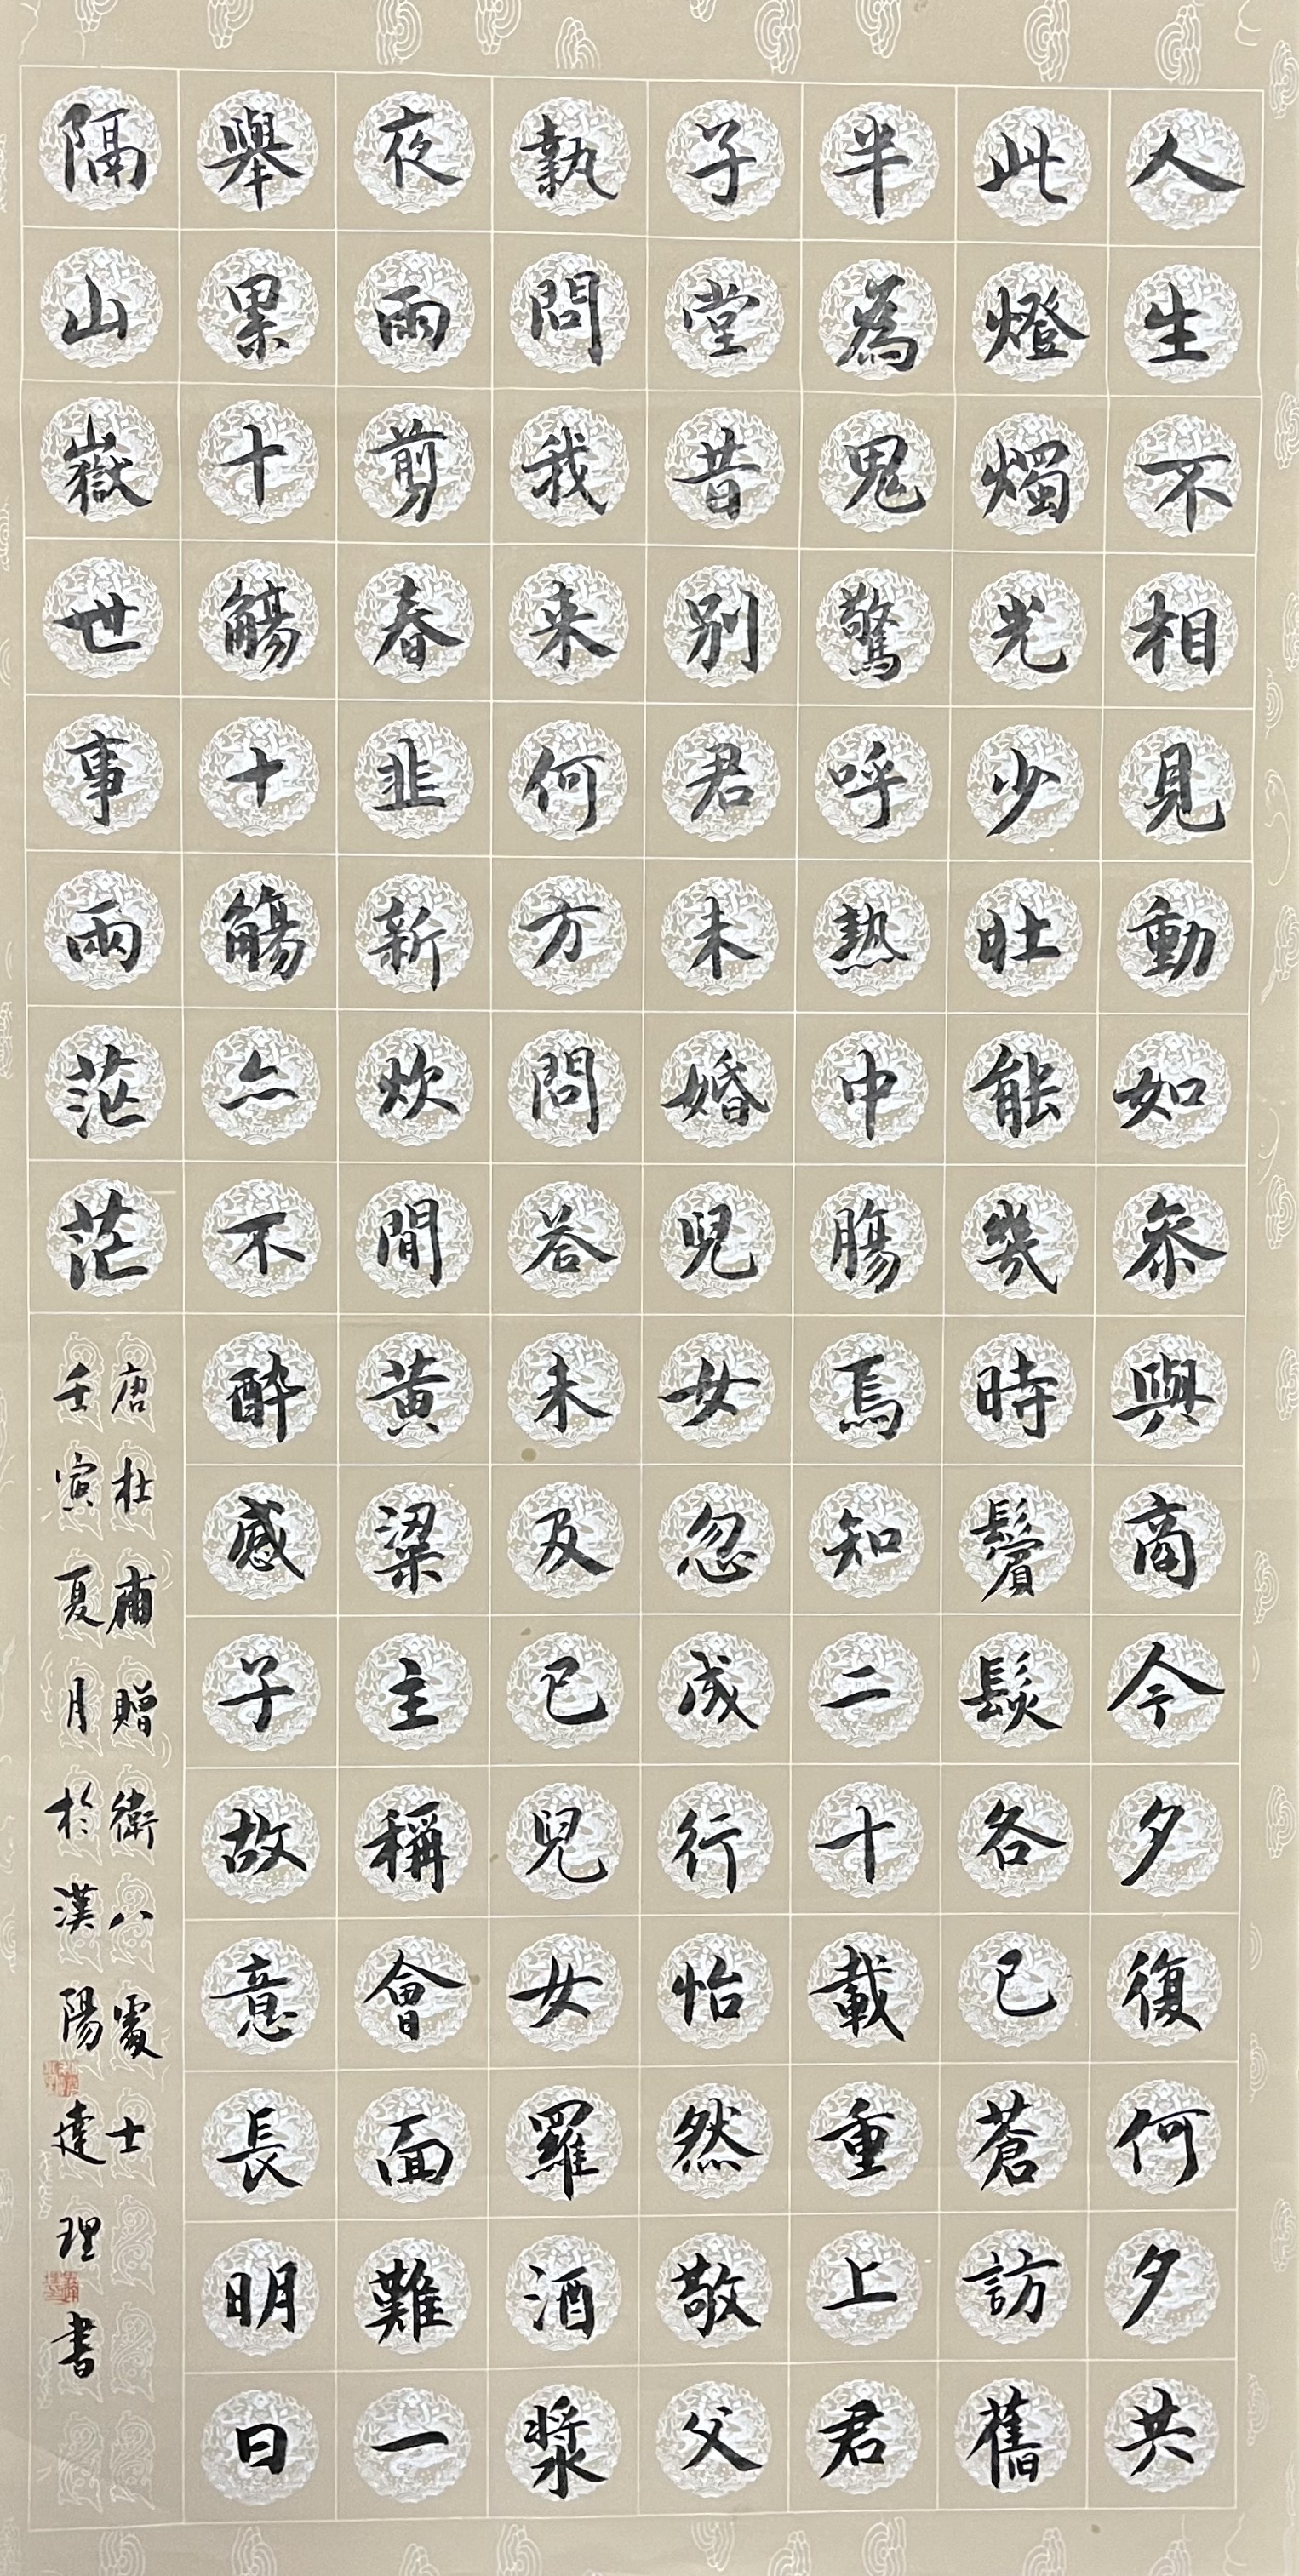 人生不相見動如參與商今夕復何夕共
此燈燭光少壯能幾時鬢髮各已蒼訪舊
半為鬼驚呼熱中腸焉知二十載重上君
子堂昔別君未婚兒女忽成行怡然敬父
執問我来何方問荅未及已兒女羅酒漿
夜雨剪春韭新炊間黃粱主稱會面難一
舉累十觴十觴亦不醉感子故意長明日
隔山嶽世事兩茫茫
唐杜甫贈衛八處士
壬寅夏月於漢陽達理書